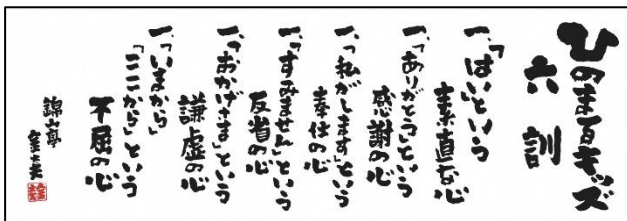 ひのまるキッズ
六訓
一、「はい」という
素直な心
一、「ありがとう」という
感謝の心
一、「私がします」という
奉仕の心
一、「すみません」という
反省の心
一、「おかげさま」という
謙虚の心
一、「いまから」
「ここから」という
不屈の心
錦山亭
金太夫